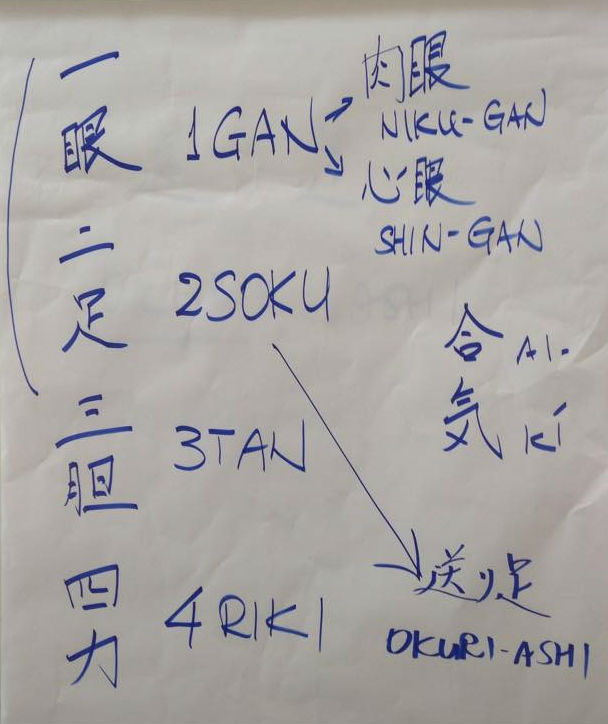 一眼二足三胆四力
1GAN
肉眼
NIKU-GAN
心眼
SHIN-GAN
2SOKU
合 AI.
気 KI
3TAN
送り足
OKURI-ASHI
4RIKI